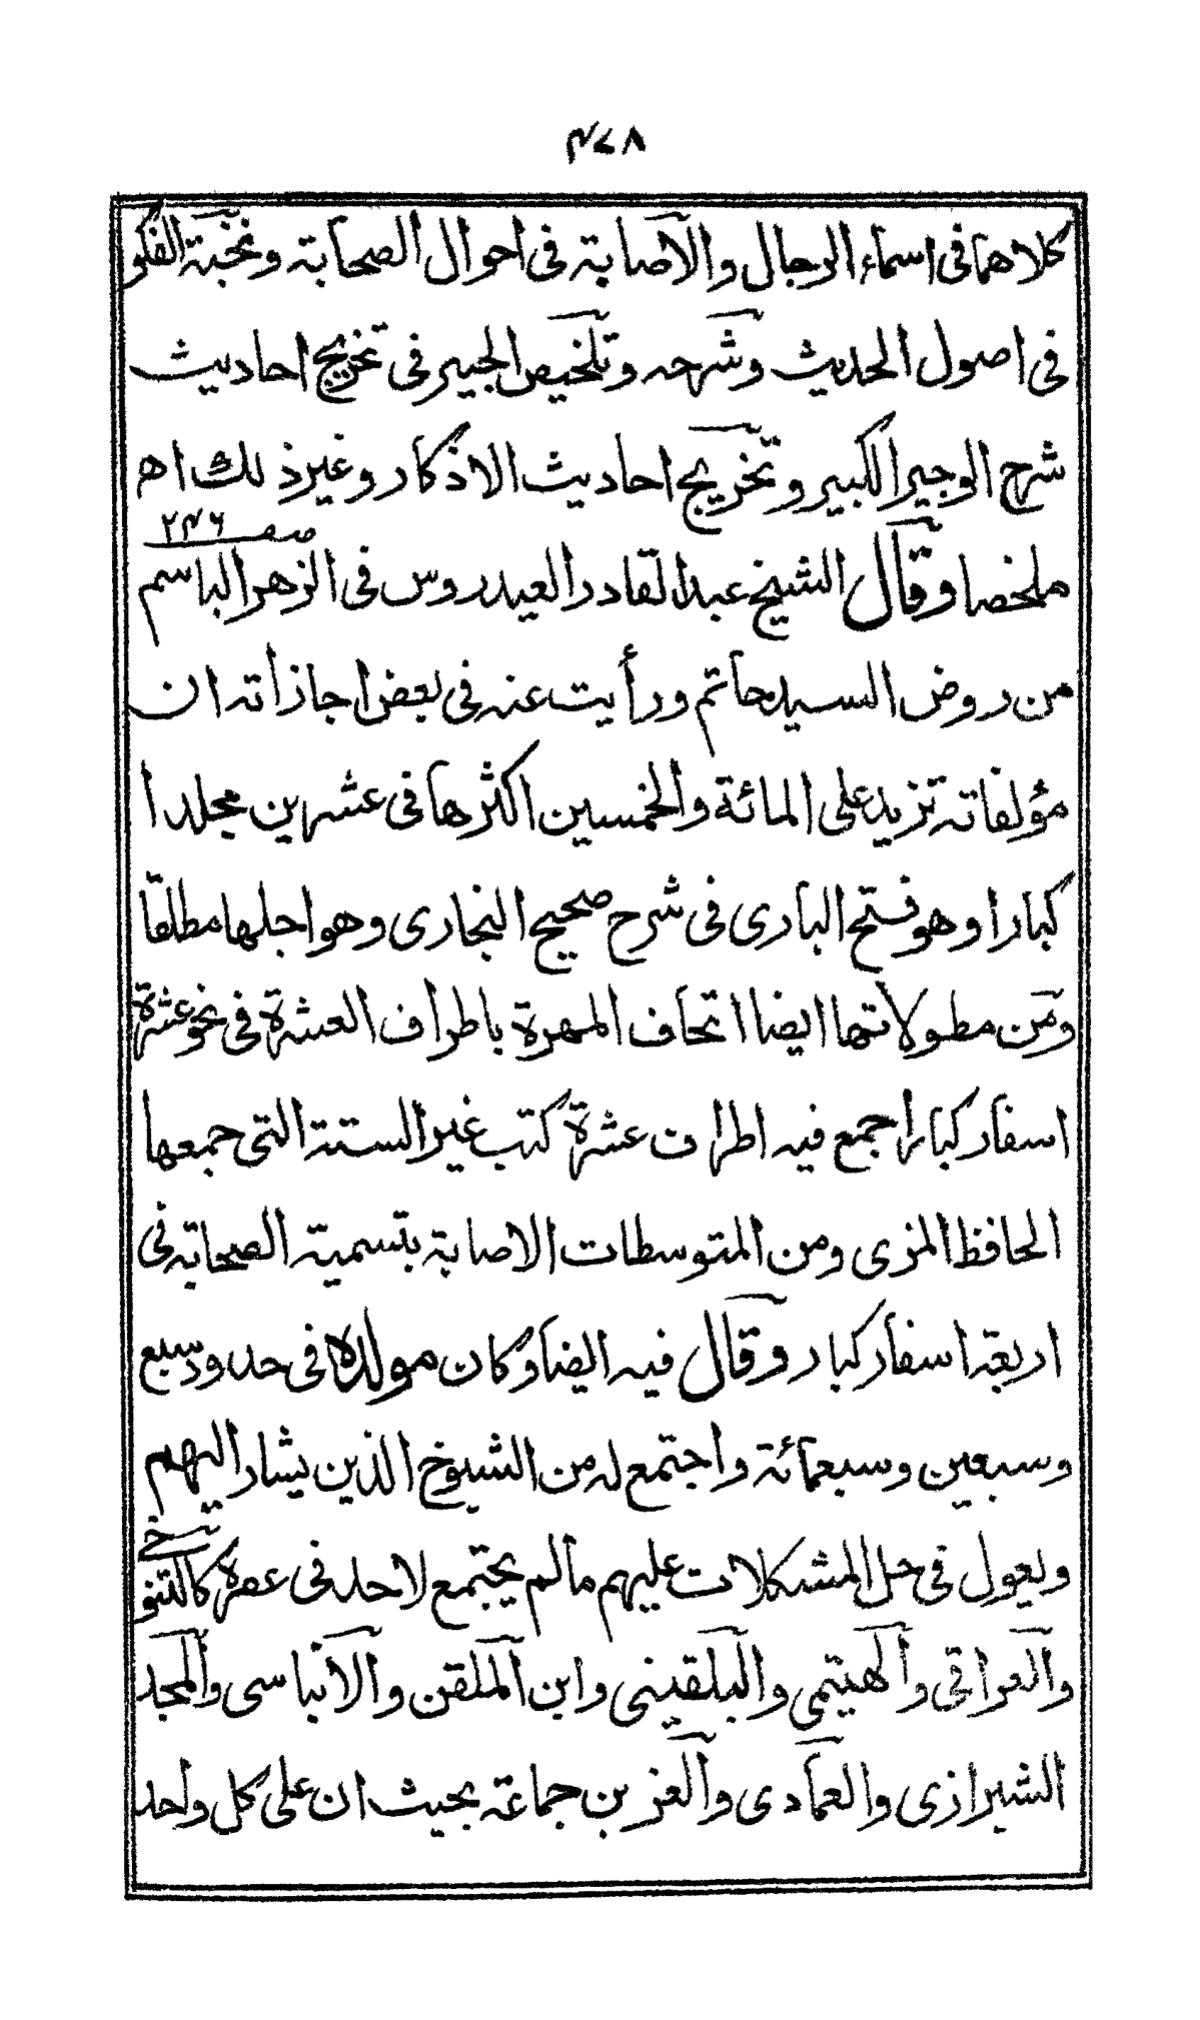 ٤٧٨
كلاهما فى اسماء الرجال والاصابة فى احوال الصحابة ونخبة الفكر
فى اصول الحديث وشرحه وتلخيص الجبير فى تخريج احاديث
شرح الوجيز الكبير وتخريج احاديث الاذكار وغير ذلك اه
صـ ٢٤٦
ملخصا وقال الشيخ عبد القادر العيدروس فى الزهر الباسم
من روض السيد حاتم ورأيت عنه فى بعض اجازاته ان
مؤلفاته تزيد على المائة والخمسين اكثرها فى عشرين مجلدا
كبارا وهو فتح البارى فى شرح صحيح البخارى وهو اجلها مطلقا
ومن مطولاتها ايضا اتحاف المهرة باطراف العشرة فى نحو عشرة
اسفار كبارا جمع فيه اطراف عشرة كتب غير الستة التى جمعها
الحافظ المزى ومن المتوسطات الاصابة بتسمية الصحابة فى
اربعة اسفار كبار وقال فيه ايضا وكان مولده فى حدود سبع
وسبعين وسبعمائة واجتمع له من الشيوخ الذين يشار اليهم
ويعول فى حل المشكلات عليهم مالم يجتمع لاحد فى عصره كالتنوخى
والعراقى والهيتمى والبلقينى وابن الملقن والانباسى والمجد
الشيرازى والعمادى والعز بن جماعة بحيث ان على كل واحد